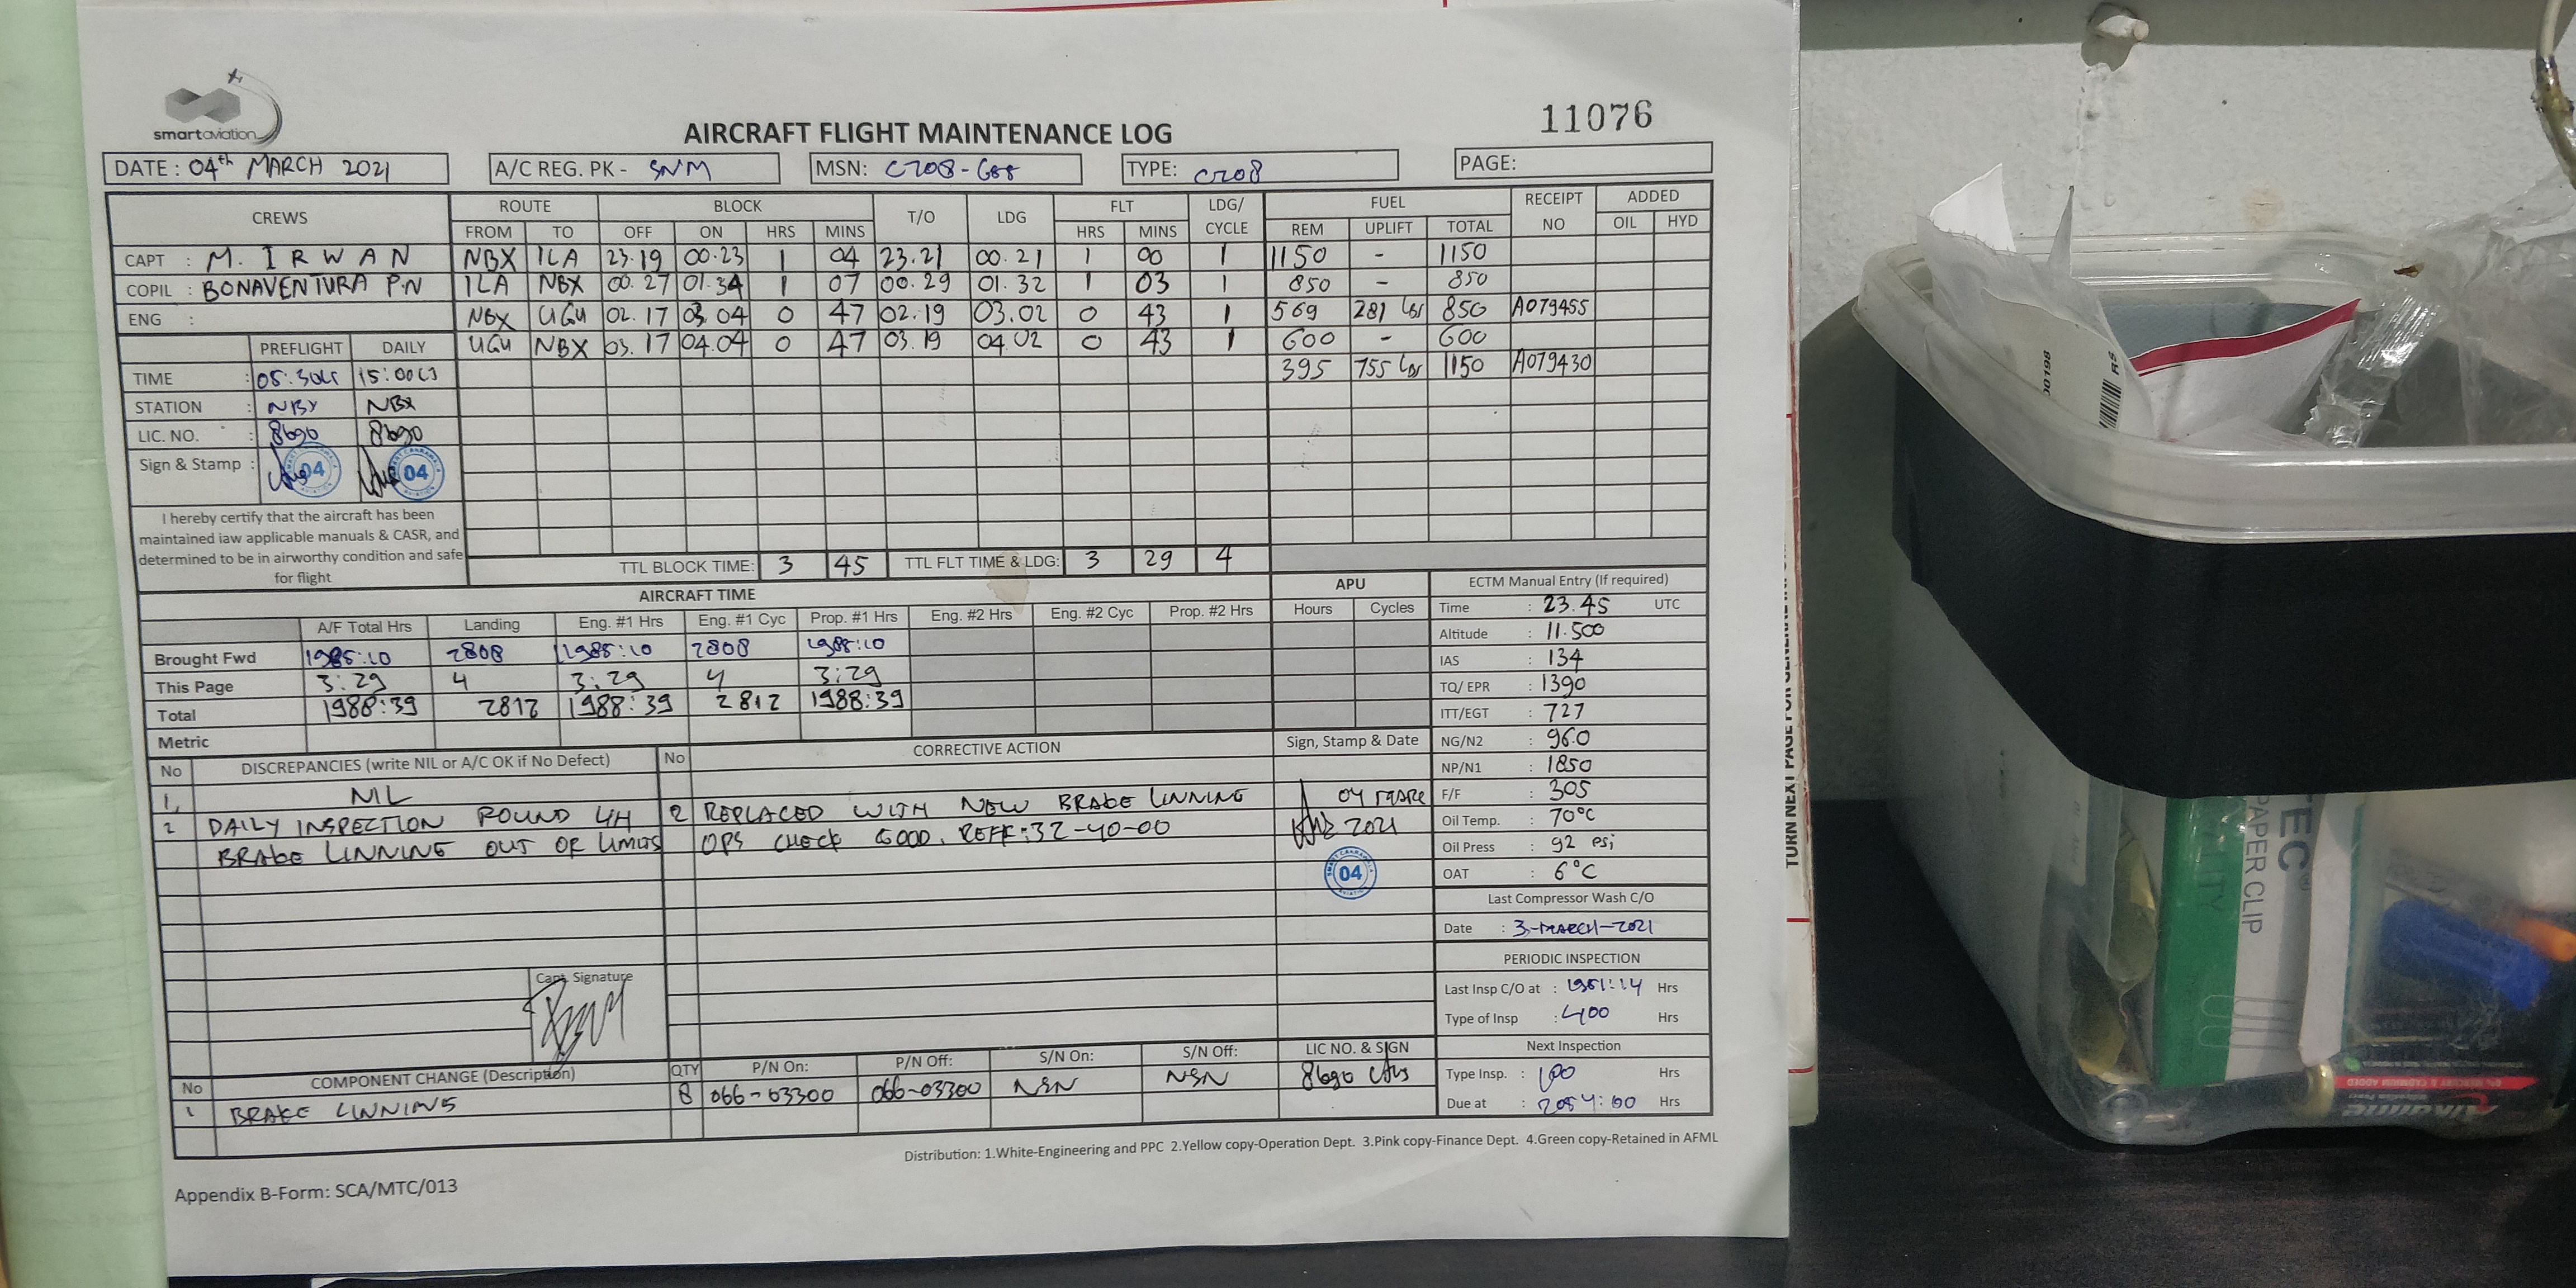 smartaviation
AIRCRAFT FLIGHT MAINTENANCE LOG
11076
DATE : 04th MARCH 2021 A/C REG. PK - SNM MSN: C208-688 TYPE: C208 PAGE:
CREWS ROUTE BLOCK T/O LDG FLT LDG/ CYCLE FUEL RECEIPT NO ADDED
FROM TO OFF ON HRS MINS HRS MINS REM UPLIFT TOTAL OIL HYD
CAPT : M. IRWAN NBX ILA 23.19 00.23 1 04 23.21 00.21 1 00 1 1150 - 1150
COPIL : BONAVENTURA P.N ILA NBX 00.27 01.34 1 07 00.29 01.32 1 03 1 850 - 850
ENG : NBX UGU 02.17 03.04 0 47 02.19 03.02 0 43 1 569 281 Lbs 850 A079455
UGU NBX 03.17 04.04 0 47 03.19 04.02 0 43 1 600 - 600
395 755 Lbs 1150 A079430
PREFLIGHT DAILY
TIME : 05:30 15:00
STATION : NBX NBX
LIC. NO. : 8690 8690
Sign & Stamp : 04 04
I hereby certify that the aircraft has been
maintained iaw applicable manuals & CASR, and
determined to be in airworthy condition and safe
for flight
TTL BLOCK TIME: 3 45 TTL FLT TIME & LDG: 3 29 4
AIRCRAFT TIME
A/F Total Hrs Landing Eng. #1 Hrs Eng. #1 Cyc Prop. #1 Hrs Eng. #2 Hrs Eng. #2 Cyc Prop. #2 Hrs
Brought Fwd 1985:10 2808 1985:10 2808 1985:10
This Page 3:29 4 3:29 4 3:29
Total 1988:39 2812 1988:39 2812 1988:39
Metric
APU
Hours Cycles
ECTM Manual Entry (If required)
Time : 23.45 UTC
Altitude : 11.500
IAS : 134
TQ/ EPR : 1390
ITT/EGT : 727
NG/N2 : 96.0
NP/N1 : 1850
F/F : 305
Oil Temp. : 70°C
Oil Press : 92 psi
OAT : 6°C
Last Compressor Wash C/O
Date : 3-MARCH-2021
PERIODIC INSPECTION
Last Insp C/O at : Hrs
Type of Insp : 400 Hrs
Next Inspection
Type Insp. : 100 Hrs
Due at : Hrs
No DISCREPANCIES (write NIL or A/C OK if No Defect) No CORRECTIVE ACTION Sign, Stamp & Date
1, NIL
2 DAILY INSPECTION FOUND LH 2 REPLACED WITH NEW BRAKE LINNING 04
BRAKE LINNING OUT OF LIMITS OPS CHECK GOOD. REFF:32-40-00 2021
04
Capt. Signature
No COMPONENT CHANGE (Description) QTY P/N On: P/N Off: S/N On: S/N Off: LIC NO. & SIGN
1 BRAKE LINNING 8 066-03300 066-03300 NSN NSN 8690
Distribution: 1.White-Engineering and PPC 2.Yellow copy-Operation Dept. 3.Pink copy-Finance Dept. 4.Green copy-Retained in AFML
Appendix B-Form: SCA/MTC/013
00198
RS
PAPER CLIP